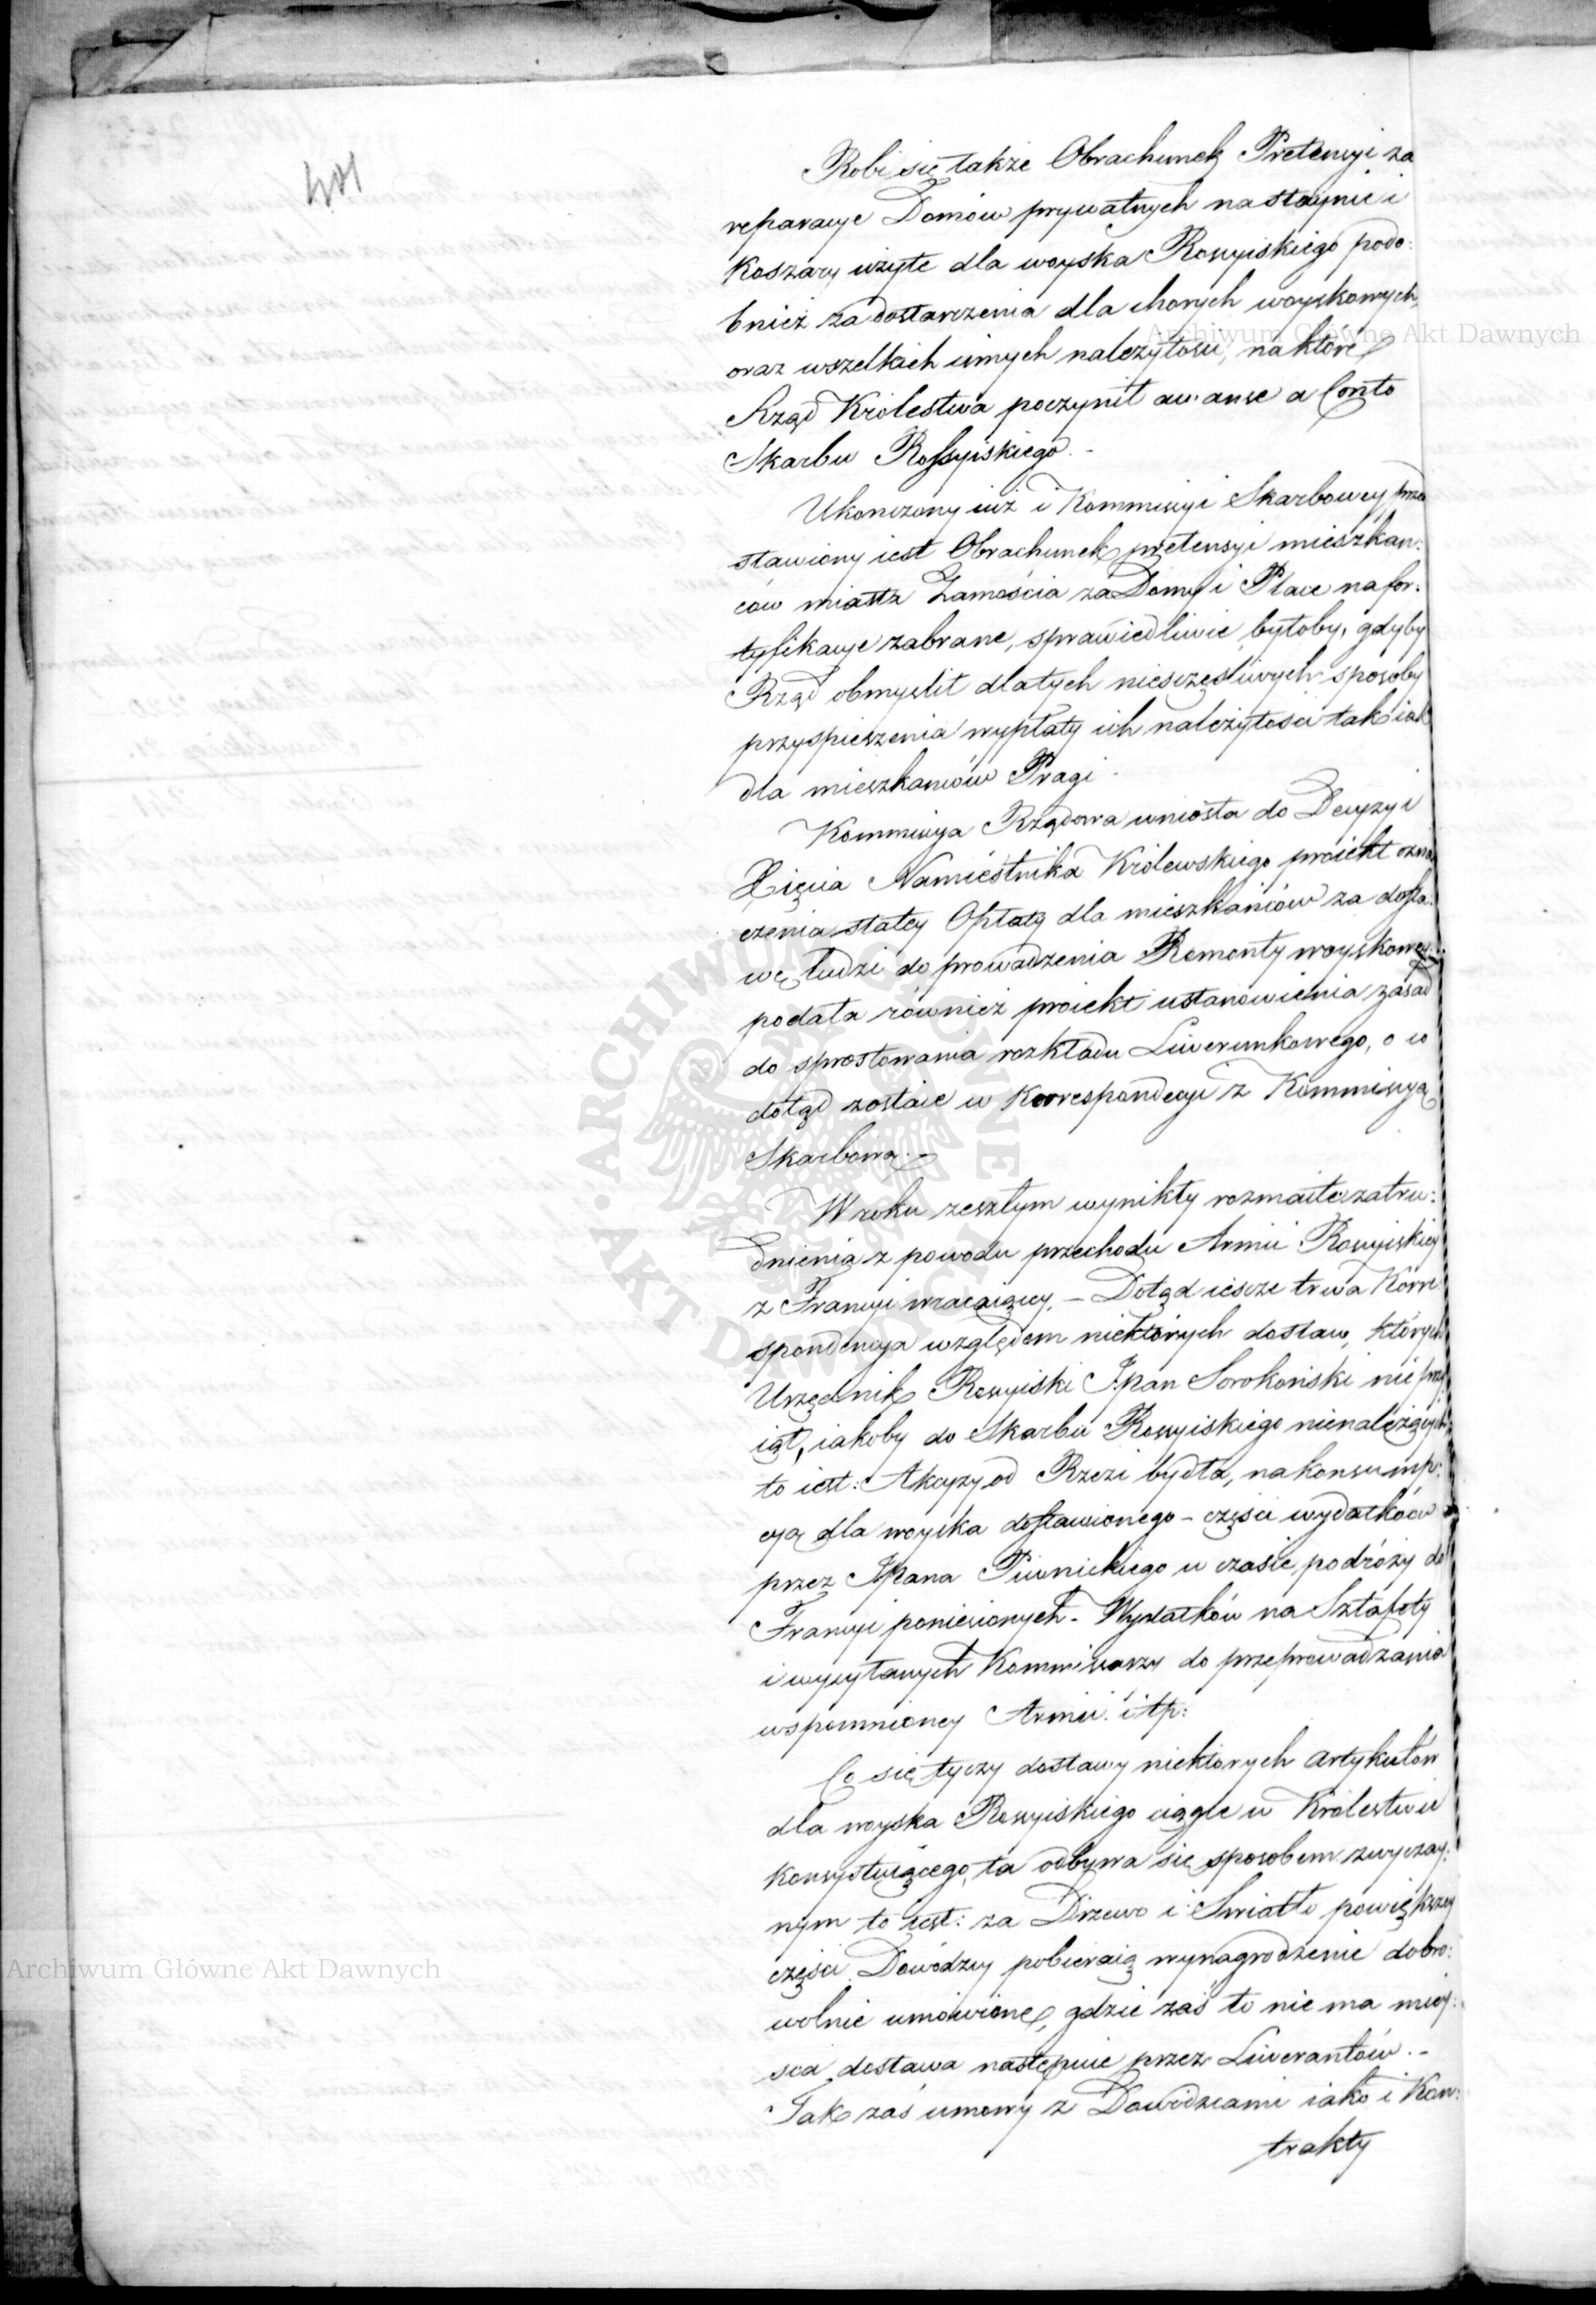 401
Robi się także Obrachunek Pretensyi za
reparacye Domów prywatnych na staynie i
Koszary użyte dla woyska Rossyiskiego podo:
bnież za dostarczenia dla chorych woyskowych,
oraz wszelkich innych należytości, na które
Rząd Królestwa poczynił awanse a Conto
Skarbu Rossyiskiego. -
Ukończony iuż i Kommissyi Skarbowey prze
stawiony iest Obrachunek pretensyi mieszkań:
ców miasta Zamościa za Domy i Place na for:
tyfikacye zabrane, sprawiedliwie byłoby, gdyby
Rząd obmyślił dla tych nieszczęśliwych sposoby
przyspieszenia wypłaty ich należytości tak iak
dla mieszkańców Pragi.
Kommissya Rządowa wniosła do Decyzyi
Xięcia Namiestnika Królewskiego proiekt ozna
czenia stałey Opłaty dla mieszkańców za dosta:
wę ludzi do prowadzenia Remonty woyskowey
podała również proiekt ustanowienia zasad
do sprostowania rozkładu Liwerunkowego, o co
dotąd zostaie w Korrespondecyi z Kommissyą
Skarbową. -
W roku zeszłym wynikły rozmaite zatru:
dnienia z powodu przechodu Armii Rossyiskiey
z Francyi wracaiącey. - Dotąd iescze trwa Korre
spondencya względem niektórych dostaw, których
Urzędnik Rossyiski JPan Sorokoński nie przy
iął, iakoby do Skarbu Rossyiskiego nienależących
to iest: Akcyzy od Rzezi bydła, na konsump:
cyą dla woyska dostawionego - części wydatków
przez JPana Piwnickiego w czasie podróży do
Francyi poniesionych - Wydatków na Sztafety
i wysyłanych Kommissarzy do przeprowadzania
wspomnioney Armii. itp:
Co się tyczy dostawy niektórych artykułów
dla woyska Rossyiskiego ciągle w Królestwie
konsystuiącego, ta odbywa się sposobem zwyczay:
nym to iest: za Drzewo i Swiatło powiększey
części Dowódzcy pobieraią wynagrodzenie dobro:
wolnie umówione, gdzie zaś to nie ma miey:
sca, dostawa następuie przez Liwerantów. -
Tak zaś umowy z Dowódzcami iako i Kon:
trakty
Archiwum Główne Akt Dawnych
Archiwum Główne Akt Dawnych
ARCHIWUM GŁÓWNE AKT DAWNYCH